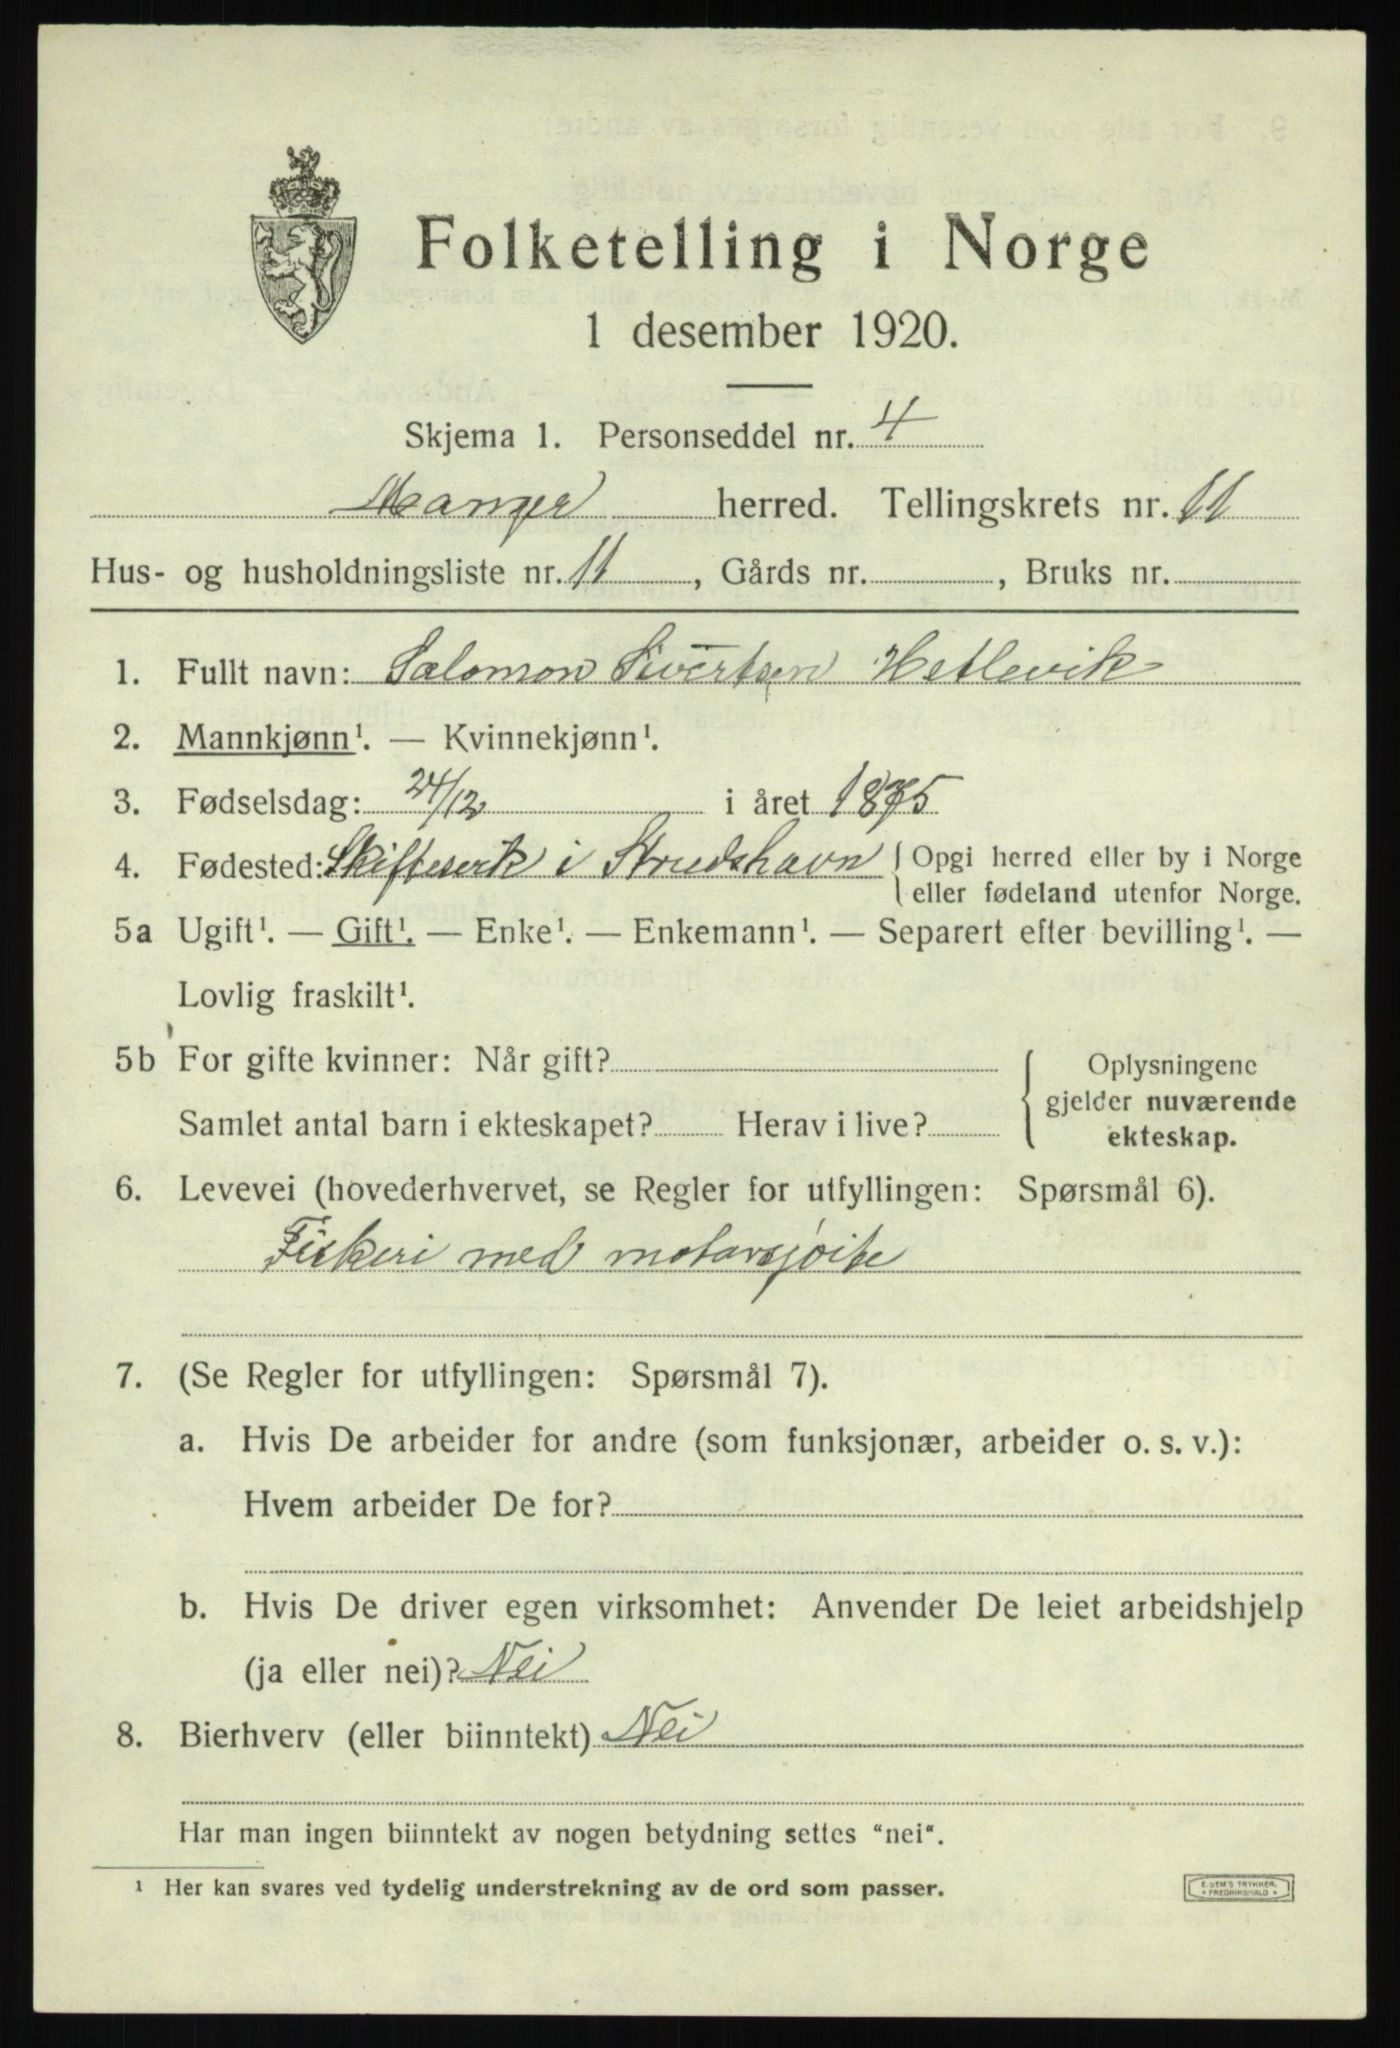 Folketelling i Norge
1 desember 1920.
Skjema 1. Personseddel nr. 4
Manger herred. Tellingskrets nr. 11
Hus- og husholdningsliste nr. 11, Gårds nr. , Bruks nr.
1. Fullt navn: Salomon Sivertsen Hetlevik
2. Mannkjønn¹. — Kvinnekjønn¹.
3. Fødselsdag: 24/12 i året 1875
4. Fødested: i { Opgi herred eller by i Norge
eller fødeland utenfor Norge.
5a Ugift¹. — Gift¹. — Enke¹. — Enkemann¹. — Separert efter bevilling¹. —
Lovlig fraskilt¹.
5b For gifte kvinner: Når gift?
Samlet antal barn i ekteskapet? Herav i live?
{ Oplysningene
gjelder nuværende
ekteskap.
6. Levevei (hovederhvervet, se Regler for utfyllingen: Spørsmål 6).
Fiskeri med
7. (Se Regler for utfyllingen: Spørsmål 7).
a. Hvis De arbeider for andre (som funksjonær, arbeider o. s. v.):
Hvem arbeider De for?
b. Hvis De driver egen virksomhet: Anvender De leiet arbeidshjelp
(ja eller nei)? Nei
8. Bierhverv (eller biinntekt) Nei
Har man ingen biinntekt av nogen betydning settes "nei".
¹ Her kan svares ved tydelig understrekning av de ord som passer.
E. SEM'S TRYKKER.
* FREDRIKSHALD *